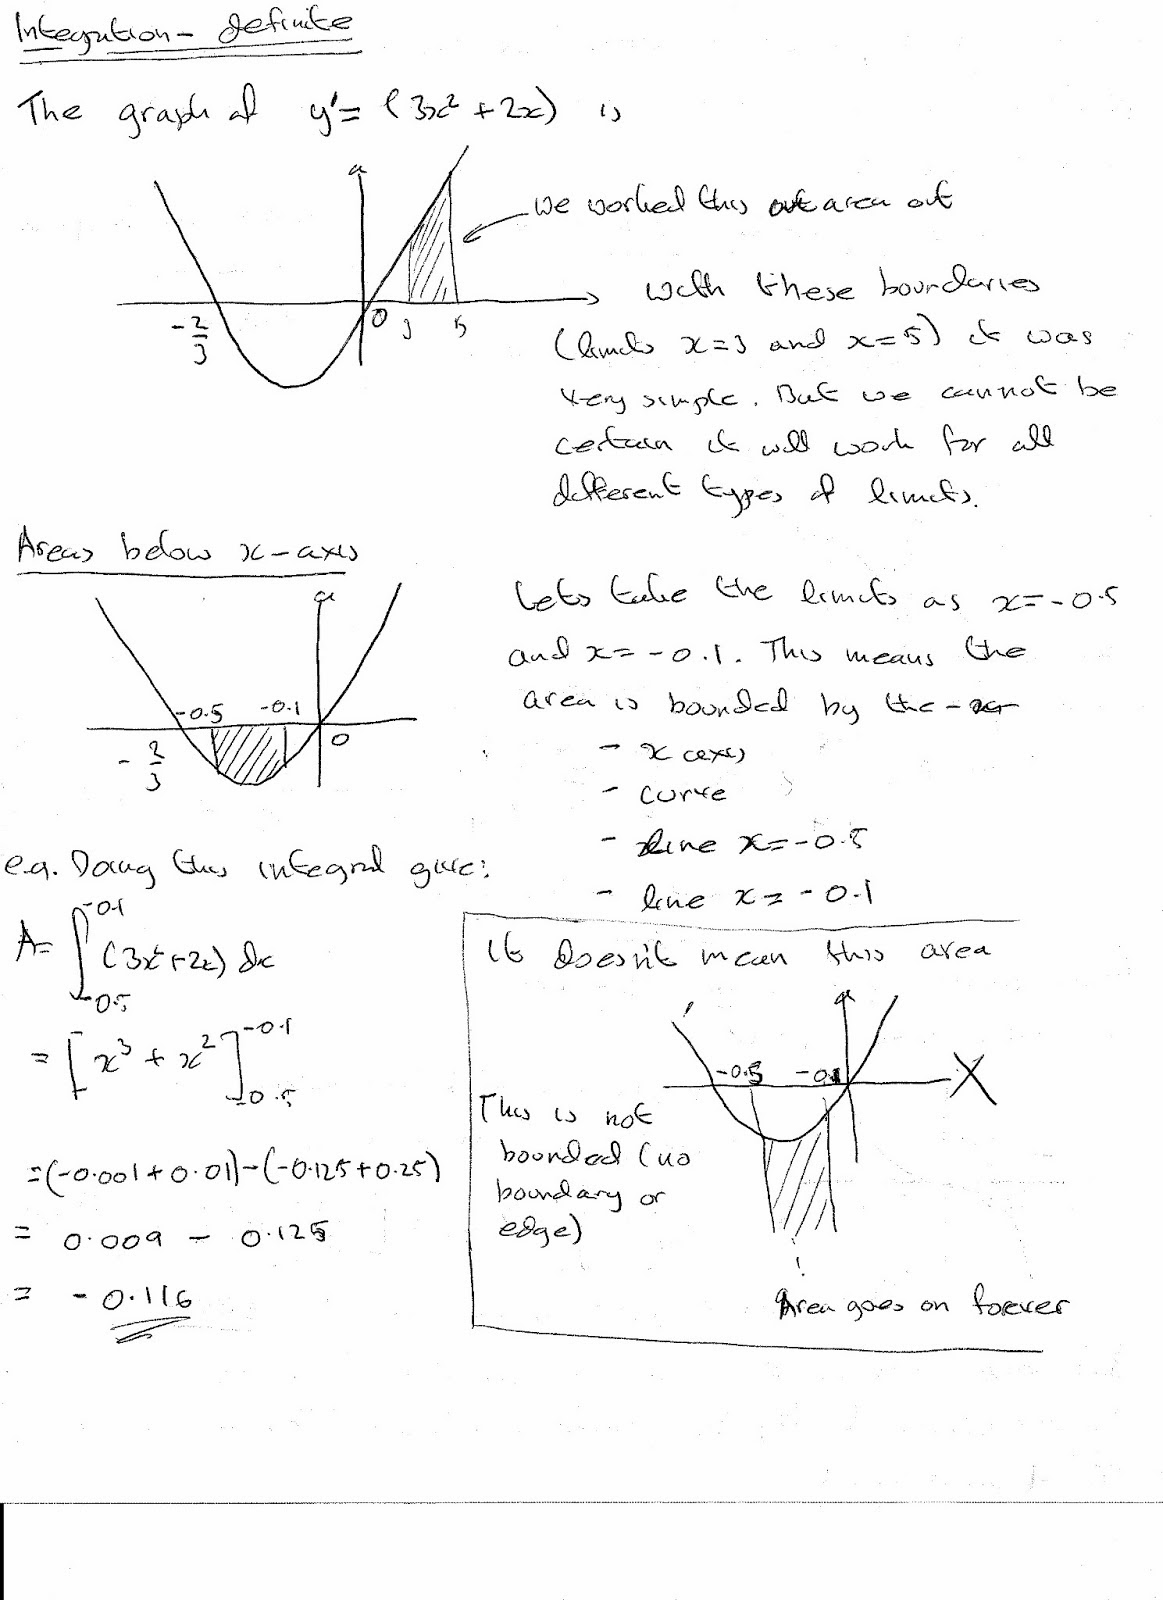 Integration - definite
The graph of y' = (3x² + 2x) is
we worked this out area out
-2/3 0 3 5
with these boundaries
(limits x=3 and x=5) it was
very simple. But we cannot be
certain it will work for all
different types of limits.
Areas below x-axis
-0.5 -0.1
-2/3 0
Lets take the limits as x=-0.5
and x=-0.1. This means the
area is bounded by the
- x axis
- curve
- line x=-0.5
- line x=-0.1
e.g. Doing this integral give:
A= ∫_{-0.5}^{-0.1} (3x²+2x) dx
= [x³ + x²]_{-0.5}^{-0.1}
=(-0.001+0.01)-(-0.125+0.25)
= 0.009 - 0.125
= -0.116
It doesn't mean this area
-0.5 -0.1 X
This is not
bounded (no
boundary or
edge)
Area goes on forever